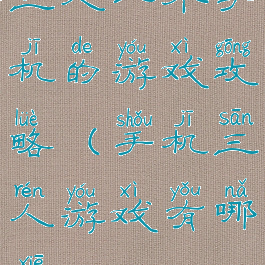 jī de yóu xì gōng
机的游戏攻
lüè shǒu jī sān
略（手机三
rén yóu xì yǒu nǎ
人游戏有哪
xiē